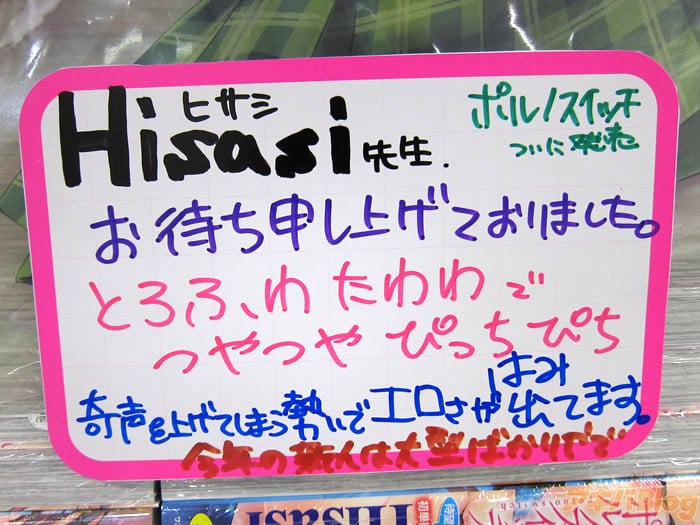 ヒサシ
Hisasi先生.
ポルノスイッチ
ついに発売
お待ち申し上げておりました。
とろふわたわわで
つやつやぴっちぴち
奇声を上げてしまう勢いでエロさがはみ出てます。
今年の新人は大型ばかりでで
初単
Hisasi